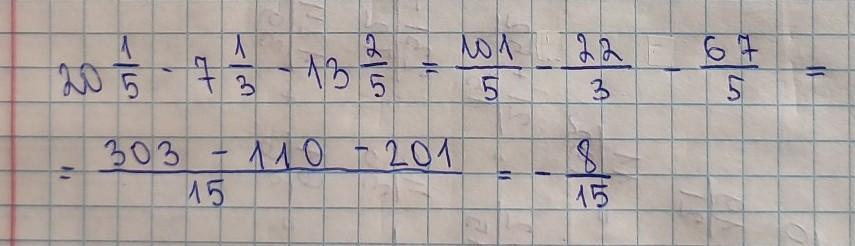 20 1/5 - 7 1/3 - 13 2/5 = 101/5 - 22/3 - 67/5 =
= (303 - 110 - 201)/15 = - 8/15